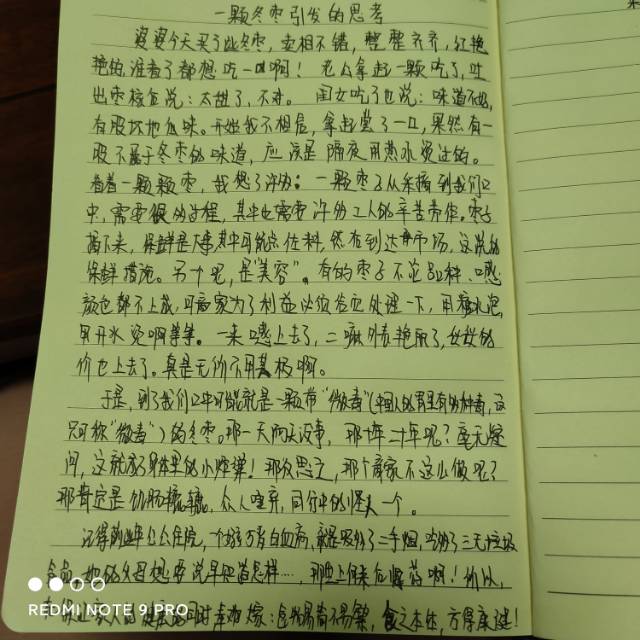 一颗冬枣引发的思考
婆婆今天买了些冬枣，卖相不错，整整齐齐，红艳
艳的，谁看了都想吃一口啊！老公拿起一颗吃了，吐
出枣核直说：太甜了，不对。闺女吃了也说：味道不好，
有股坏地瓜味。开始我不相信，拿起尝了一口，果然有一
股不属于冬枣的味道，应该是隔夜用热水烫过的。
看着一颗颗枣，我想了许多：一颗枣子从采摘到我们口
中，需要很多过程，其中也需要许多工人的辛苦劳作。枣子
摘下来，保鲜是大事，其中可能点佐料，然后到达市场，这说的
保鲜措施。另一个呢，是"美容"。有的枣子不论品种、口感
颜色都不上成，可商家为了利益必须给它处理一下，用糖水泡
用开水烫啊等等。一来口感上去了，二嘛外表艳丽了，女女的
价也上去了。真是无所不用其极啊。
于是，到了我们口中可能就是一颗带"微毒"(中国人的胃里有多种毒，这
只可称"微毒")的冬枣。那一天两天没事，那十年二十年呢？毫无疑
问，这就成了身体里的小炸弹！那反思之，那个商家不这么做呢？
那肯定是饥肠辘辘，众人唾弃，同行中的怪夫一个。
记得前些年公公住院，个孩子患白血病，就是吸多了二手烟，吃多了三无垃圾
食品，他的父母想要说早知道怎样……，那世上何来后悔药啊！所以，
食之本味，方得康健！
REDMI NOTE 9 PRO